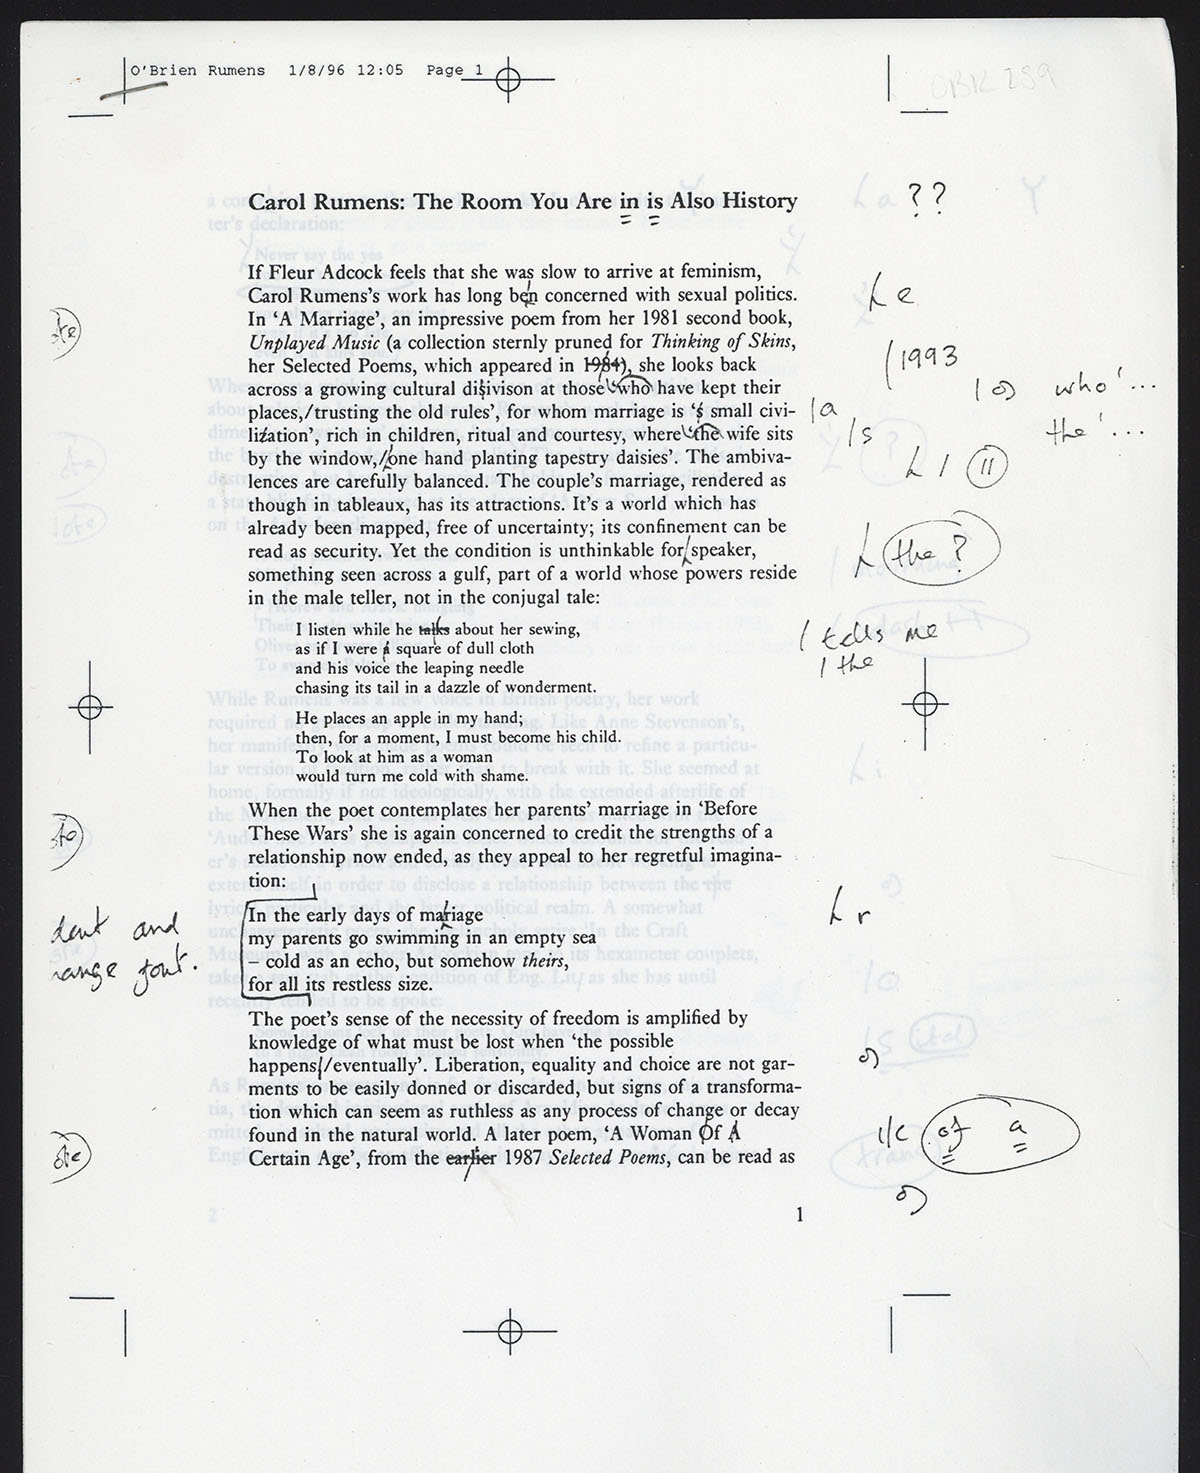 O'Brien Rumens 1/8/96 12:05 Page 1
OBR 259
Carol Rumens: The Room You Are in is Also History ??
If Fleur Adcock feels that she was slow to arrive at feminism,
Carol Rumens's work has long ben concerned with sexual politics. e
In 'A Marriage', an impressive poem from her 1981 second book,
Unplayed Music (a collection sternly pruned for Thinking of Skins,
her Selected Poems, which appeared in 1984), she looks back 1993
across a growing cultural disivison at those 'who have kept their who'...
places,/trusting the old rules', for whom marriage is 's small civi- a
lization', rich in children, ritual and courtesy, where 'the wife sits s the'...
by the window,/one hand planting tapestry daisies'. The ambiva-
lences are carefully balanced. The couple's marriage, rendered as
though in tableaux, has its attractions. It's a world which has
already been mapped, free of uncertainty; its confinement can be
read as security. Yet the condition is unthinkable for speaker, the?
something seen across a gulf, part of a world whose powers reside
in the male teller, not in the conjugal tale:
I listen while he talks about her sewing, tells me
as if I were a square of dull cloth the
and his voice the leaping needle
chasing its tail in a dazzle of wonderment.
He places an apple in my hand;
then, for a moment, I must become his child.
To look at him as a woman
would turn me cold with shame.
When the poet contemplates her parents' marriage in 'Before
These Wars' she is again concerned to credit the strengths of a
relationship now ended, as they appeal to her regretful imagina-
tion:
In the early days of mariage r
dent and
my parents go swimming in an empty sea
– cold as an echo, but somehow theirs,
ange font.
for all its restless size.
The poet's sense of the necessity of freedom is amplified by
knowledge of what must be lost when 'the possible
happens/eventually'. Liberation, equality and choice are not gar-
ments to be easily donned or discarded, but signs of a transforma-
tion which can seem as ruthless as any process of change or decay
found in the natural world. A later poem, 'A Woman Of A l/c of a
Certain Age', from the earlier 1987 Selected Poems, can be read as
1